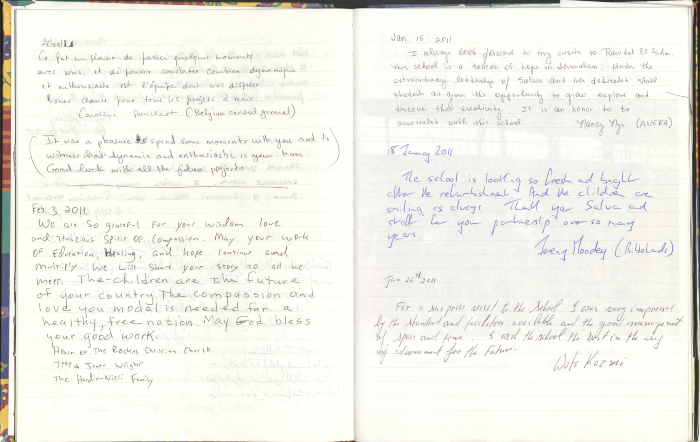 Ce fut un plaisir de passer quelques moments
avec vous, et de pouvoir constater combien dynamique
et enthousiaste est l'équipe dont vous disposez
Bonne chance pour tous les projets à venir.
Caroline (Belgian consul general)
It was a pleasure to spend some moments with you and to
witness how dynamic and enthusiastic is your team
Good luck with all the future projects
Feb. 3, 2011
We are so grateful for your wisdom love
and spirit of compassion. May your work
of education, healing, and hope continue and
multiply. We will share your story to all we
meet. The children are the future
of your country. The compassion and
love you model is needed for a
healthy, free nation. May God bless
your good work.
Heart of the Rockies Christian Church
Jeff & Wright
The Family
Jan. 15 2011
I always look forward to my visits to Rawdat El Zuhur.
This school is a beacon of hope in Jerusalem. Under the
extraordinary leadership of Salwa and her dedicated staff
students are given the opportunity to grow, explore and
discover their creativity. It is an honor to be
associated with this school.
Nancy (ANERA)
18 January 2011
The school is looking so fresh and bright
after the refurbishment. And the children are
smiling as always. Thank you Salwa and
staff, for your partnership over so many
years.
Jeremy Moodey (Biblelands)
Jan 20th 2011
For a surprise visit to the School I was very impressed
by the standard and facilities available and the good management
of space and time. I wish the school the best in the way
of advancement for the future.
Kazmi